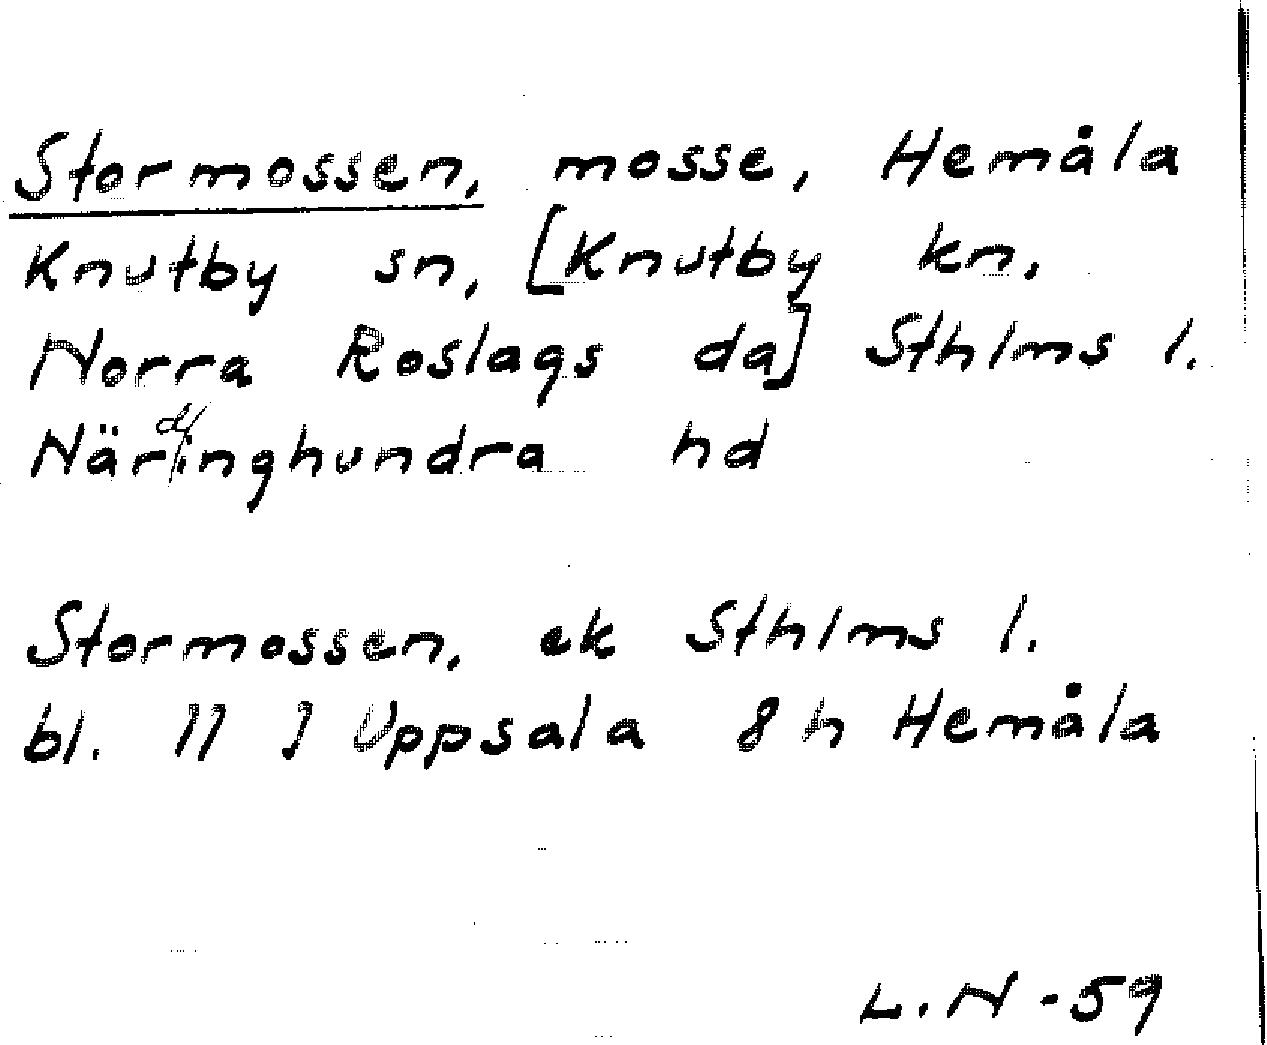 Stormossen, mosse, Hemåla
Knutby sn, [Knutby kn.
Norra Roslags da] Sthlms l.
Närdinghundra hd
Stormossen, ek Sthlms l.
bl. 11 J Uppsala 8 h Hemåla
L.N -59